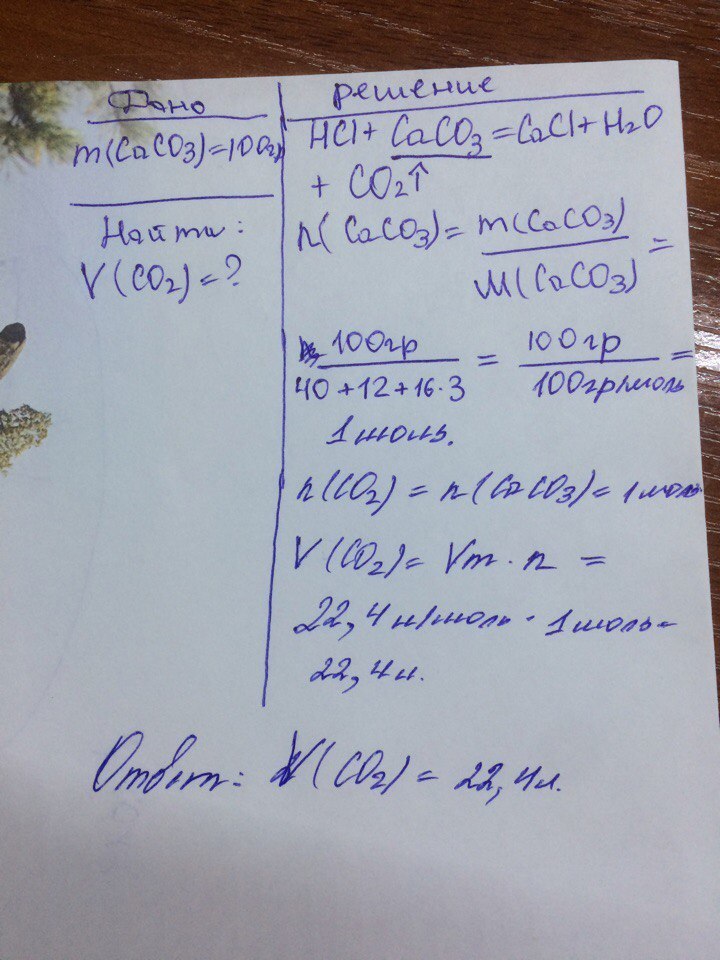 Дано
m(CaCO3)=100гр
Найти:
V(CO2)=?
решение
HCl+CaCO3=CaCl+H2O
+ CO2↑
n(CaCO3)= m(CaCO3)/M(CaCO3) =
100гр/40+12+16·3 = 100гр/100гр/моль =
1моль.
n(CO2)=n(CaCO3)=1моль
V(CO2)=Vm·n=
22,4л/моль·1моль=
22,4л.
Ответ: V(CO2)=22,4л.